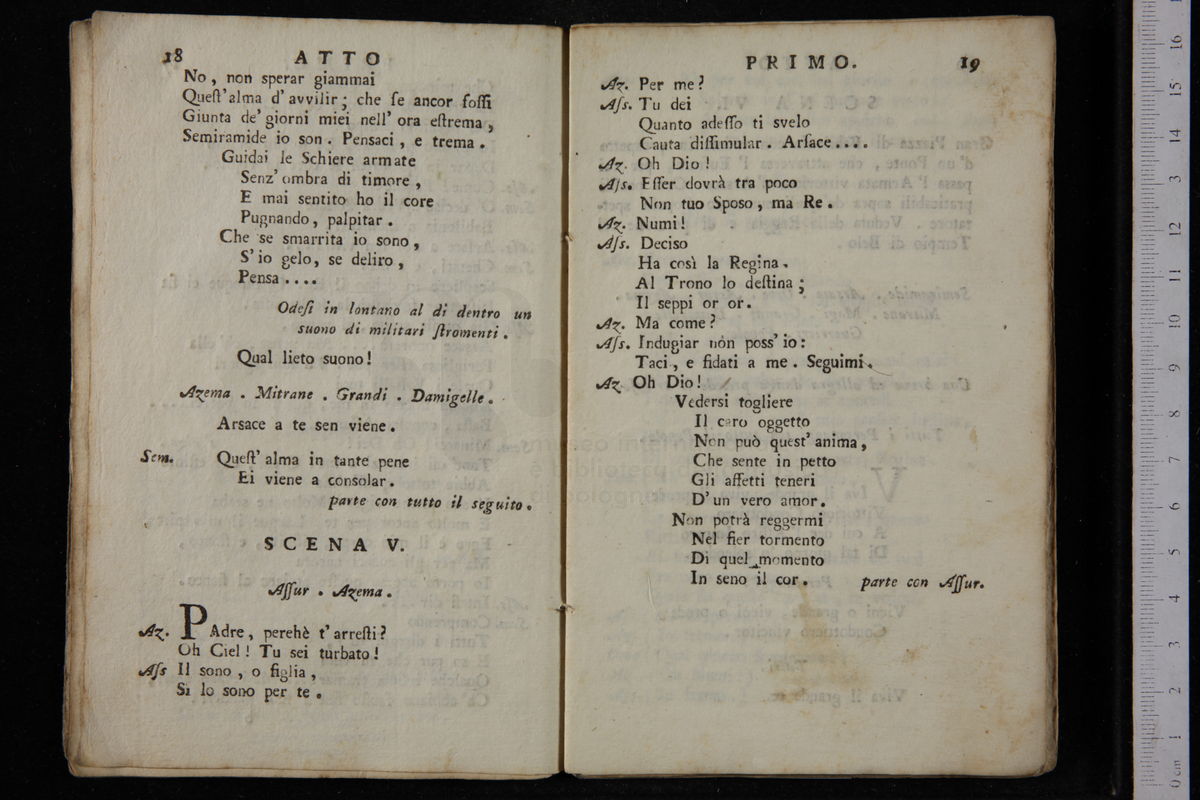 18 ATTO
No, non sperar giammai
Quest'alma d'avvilir; che se ancor fossi
Giunta de' giorni miei nell' ora estrema,
Semiramide io son. Pensaci, e trema.
Guidai le Schiere armate
Senz' ombra di timore,
E mai sentito ho il core
Pugnando, palpitar.
Che se smarrita io sono,
S' io gelo, se deliro,
Pensa....
Odesi in lontano al di dentro un
suono di militari stromenti.
Qual lieto suono!
Azema. Mitrane. Grandi. Damigelle.
Arsace a te sen viene.
Sem. Quest' alma in tante pene
Ei viene a consolar.
parte con tutto il seguito.
SCENA V.
Assur. Azema.
Az. PAdre, perehè t' arresti?
Oh Ciel! Tu sei turbato!
Ass Il sono, o figlia,
Si lo sono per te.
PRIMO. 19
Az. Per me?
Ass. Tu dei
Quanto adesso ti svelo
Cauta dissimular. Arsace....
Az. Oh Dio!
Ass. Esser dovrà tra poco
Non tuo Sposo, ma Re.
Az. Numi!
Ass. Deciso
Ha così la Regina.
Al Trono lo destina;
Il seppi or or.
Az. Ma come?
Ass. Indugiar non poss' io:
Taci, e fidati a me. Seguimi.
Az. Oh Dio!
Vedersi togliere
Il caro oggetto
Non può quest' anima,
Che sente in petto
Gli affetti teneri
D' un vero amor.
Non potrà reggermi
Nel fier tormento
Di quel momento
In seno il cor. parte con Assur.